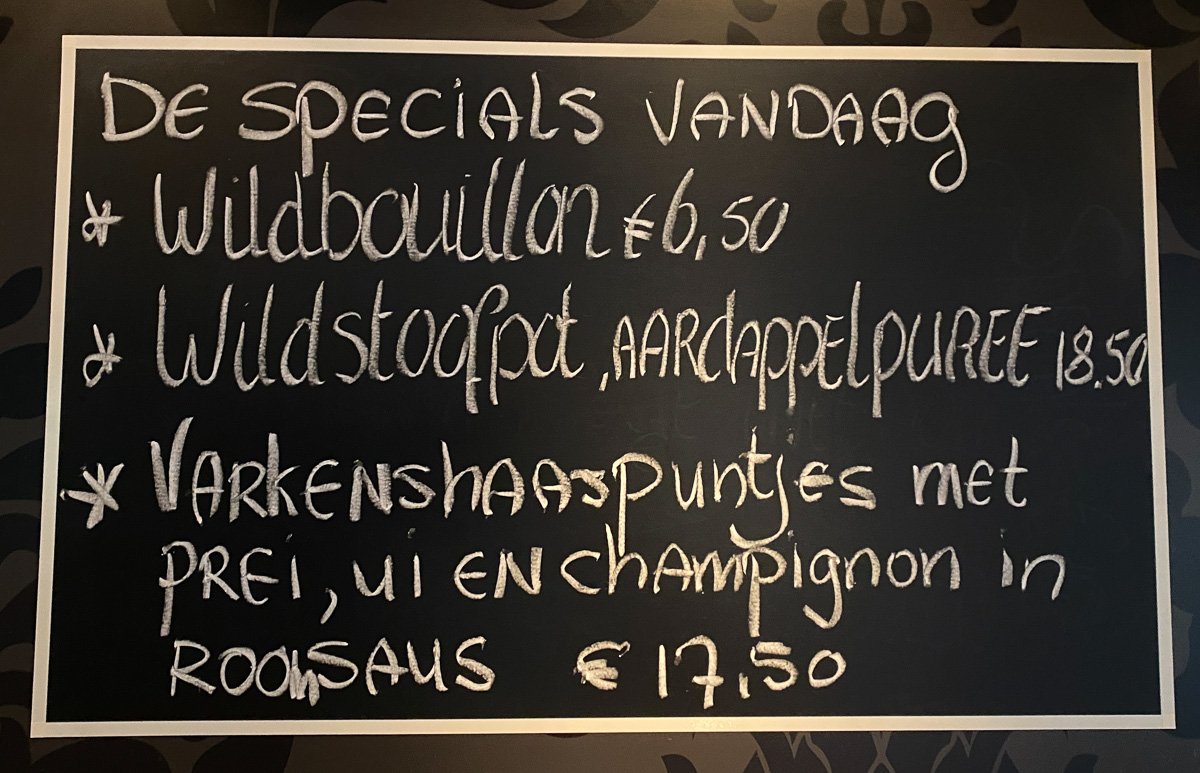 DE SPECIALS VANDAAG
* Wildbouillon €6,50
* Wildstoofpot, AARDAPPELPUREE 18.50
* VARKENSHAASpuntjes met
PREI, ui EN champignon in
ROOMSAUS € 17,50